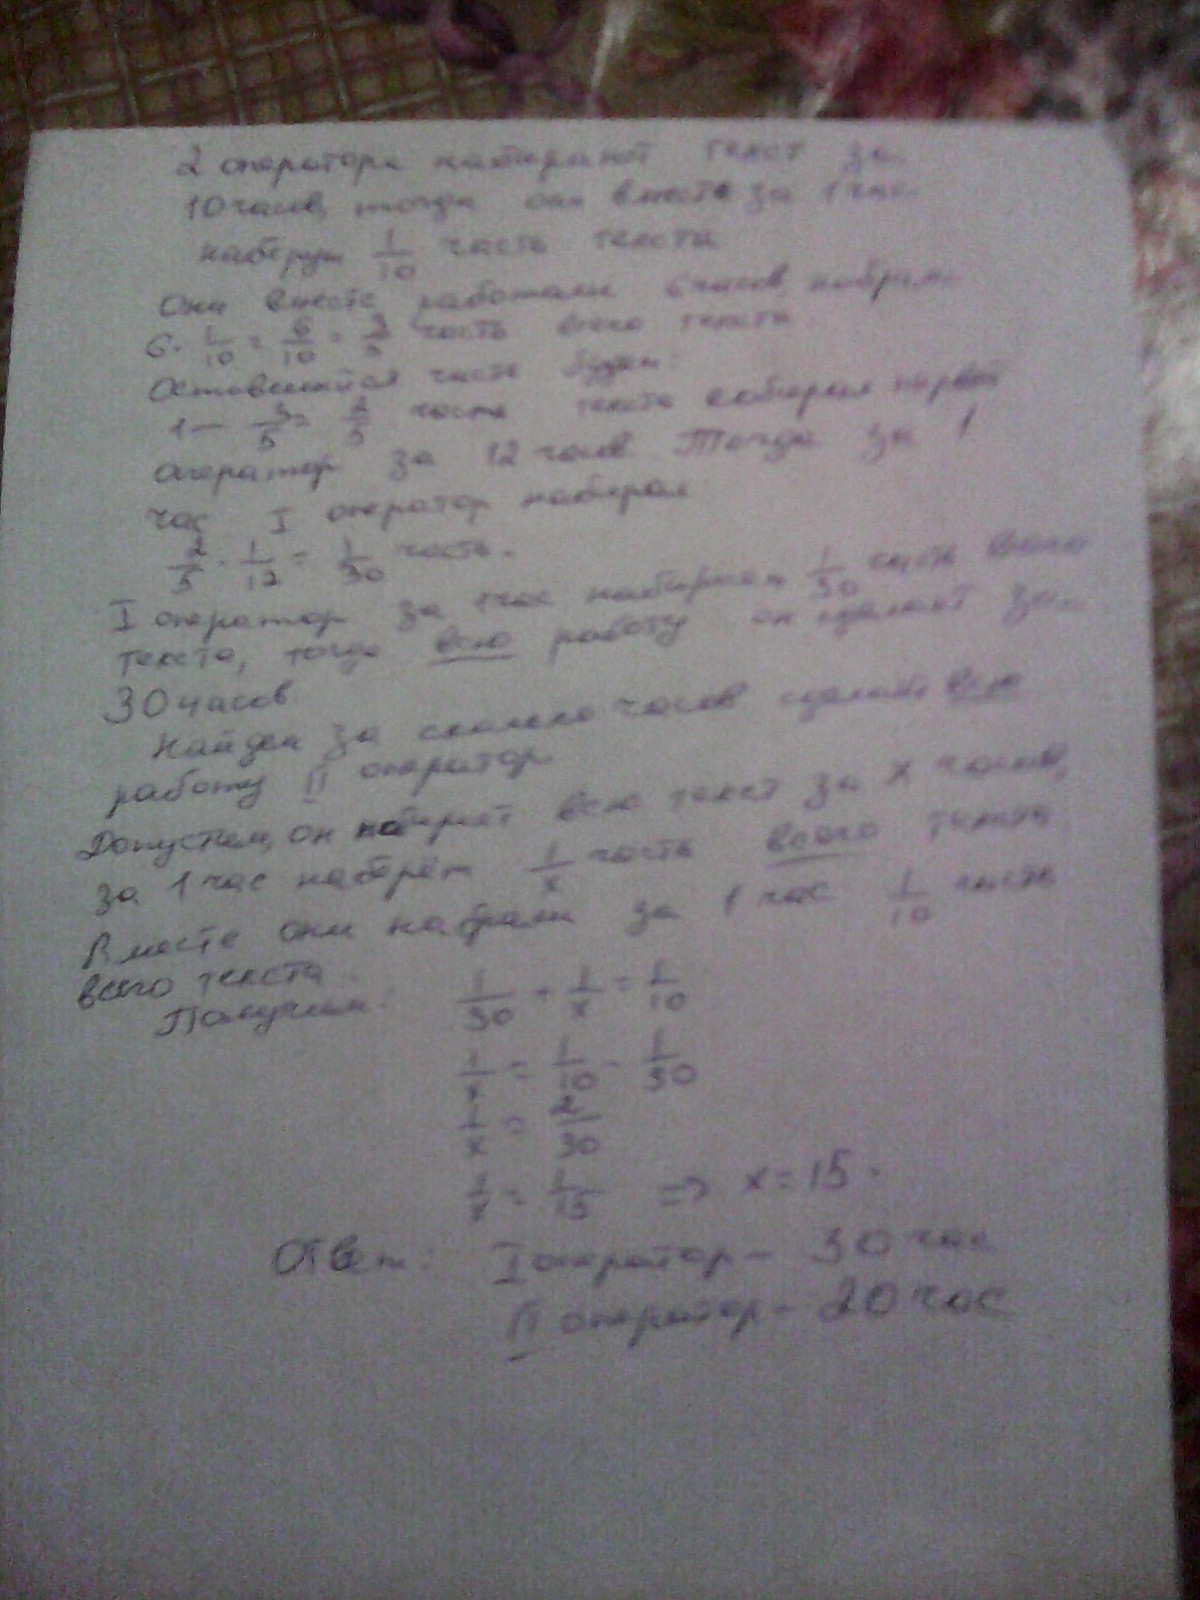 2 оператора набирают текст за
10 часов, тогда они вместе за 1 час
наберут 1/10 часть текста
Они вместе работали 6 часов, набрали
6 · 1/10 = 6/10 = 3/5 часть всего текста.
Оставшийся часть будет:
1 - 3/5 = 2/5 часть текста набирал первый
оператор за 12 часов. Тогда за 1
час I оператор набирал
2/5 · 1/12 = 1/30 часть.
I оператор за 1 час набирает 1/30 часть всего
текста, тогда всю работу он сделает за
30 часов
Найдем за сколько часов сделает всю
работу II оператор
Допустим, он набирает всю текст за x часов,
за 1 час наберёт 1/x часть всего текста
Вместе они набрали за 1 час 1/10 часть
всего текста.
Получим: 1/30 + 1/x = 1/10
1/x = 1/10 - 1/30
1/x = 2/30
1/x = 1/15 => x = 15.
Ответ: I оператор - 30 час
II оператор - 20 час